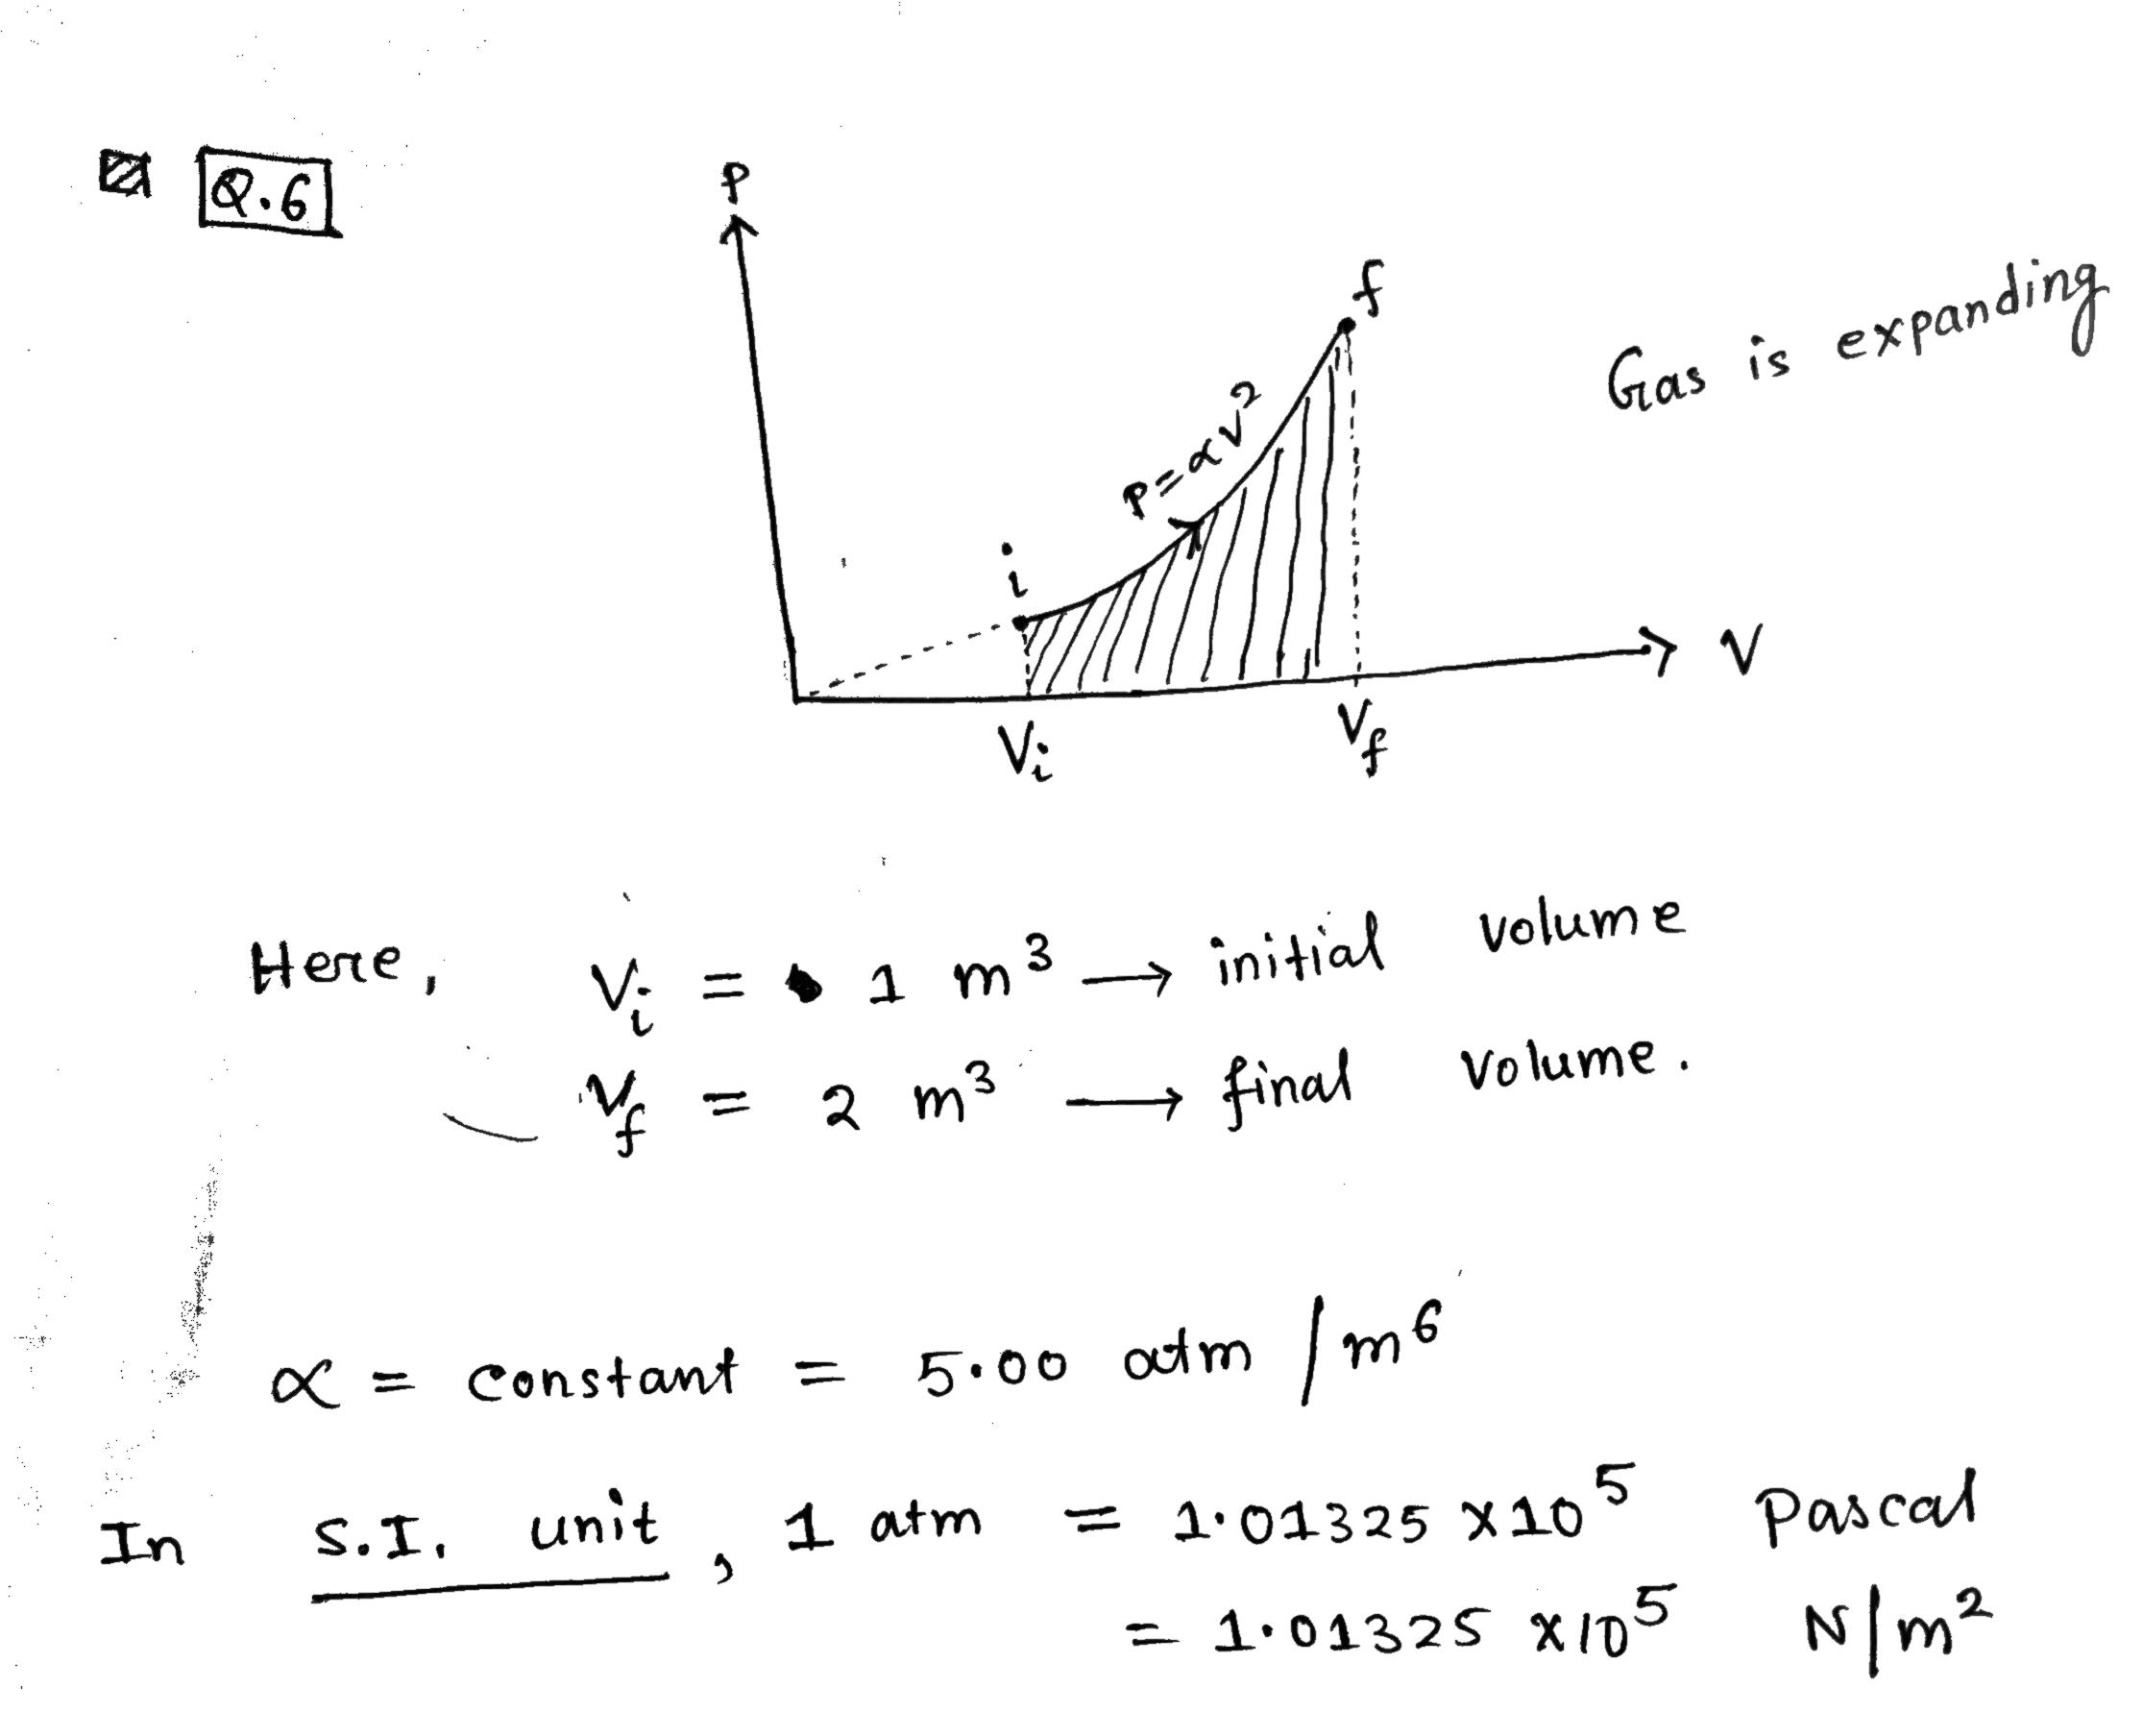 Q.6
P
f
Gas is expanding
P=αV²
i
V
Vi
Vf
Here, Vi = 1 m³ → initial volume
Vf = 2 m³ → final volume.
α = constant = 5.00 atm / m⁶
In S.I. unit, 1 atm = 1.01325 ×10⁵ Pascal
= 1.01325 ×10⁵ N/m²